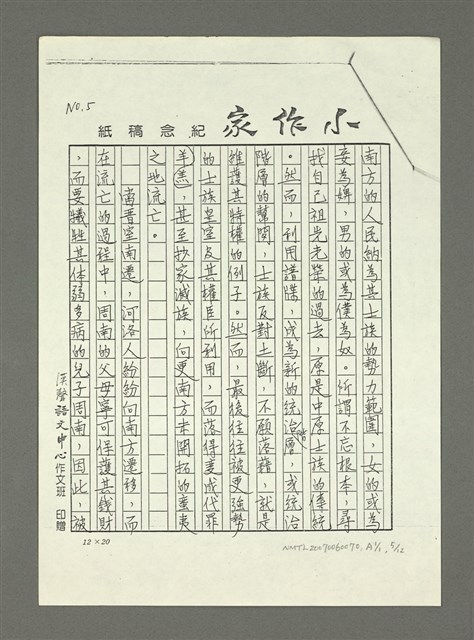 NO.5
小作家紀念稿紙
南方的人民納為其士族的勢力範圍，女的或為
妾為婢，男的或為僕為奴。所謂不忘根本，尋
找自己祖先光榮的過去，原是中原士族的傳統
。然而，利用譜牒，成為新的統治階層，或統治
階層的幫閒，士族反對土斷，不願落籍，就是
維護其特權的例子。然而，最後往往被更強勢
的士族皇室及其權臣所利用，而落得變成代罪
羊羔，甚至抄家滅族，向更南方未開拓的蠻夷
之地流亡。
當晋室南遷，河洛人紛紛向南方遷移，而
在流亡的過程中，周南的父母寧可保護其錢財
，而要犧牲其体弱多病的兒子周南，因此，被
漢聲語文中心作文班 印贈
12×20
NMTL20070060070, A1/1, 5/12